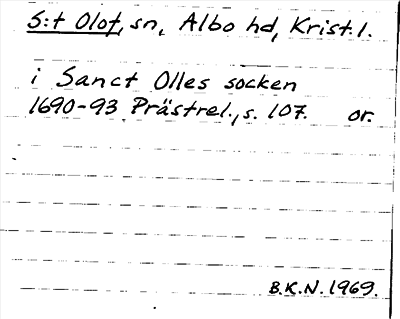 S:t Olof, sn, Albo hd, Krist. l.
i Sanct Olles socken
1690-93 Prästrel., s. 107. or.
B.K.N. 1969.